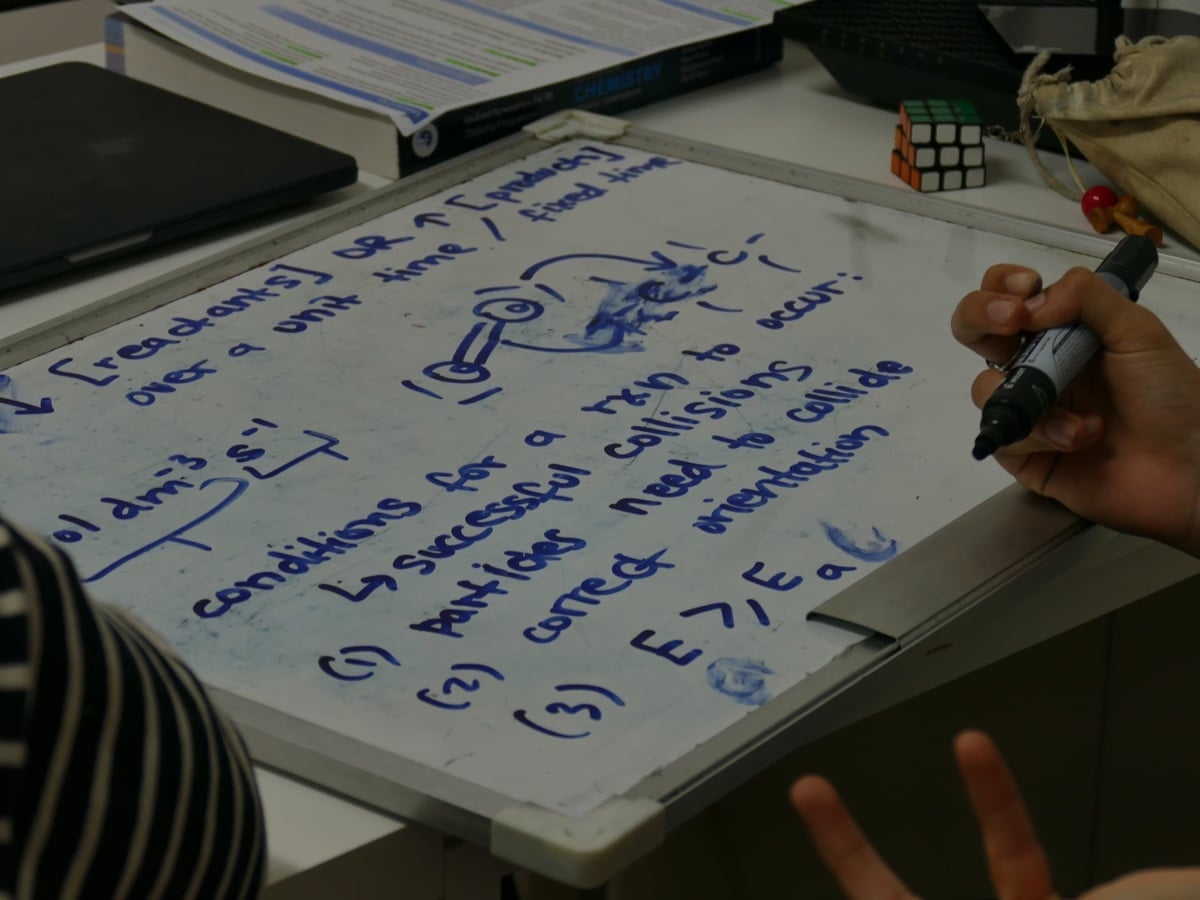 CHEMISTRY
↓ [reactants] OR ↑ [products]
over a unit time / fixed time
ol dm⁻³ s⁻¹
O C
O C
conditions for a rxn to occur:
↳ successful collisions
(1) particles need to collide
(2) correct orientation
(3) E ⩾ Ea